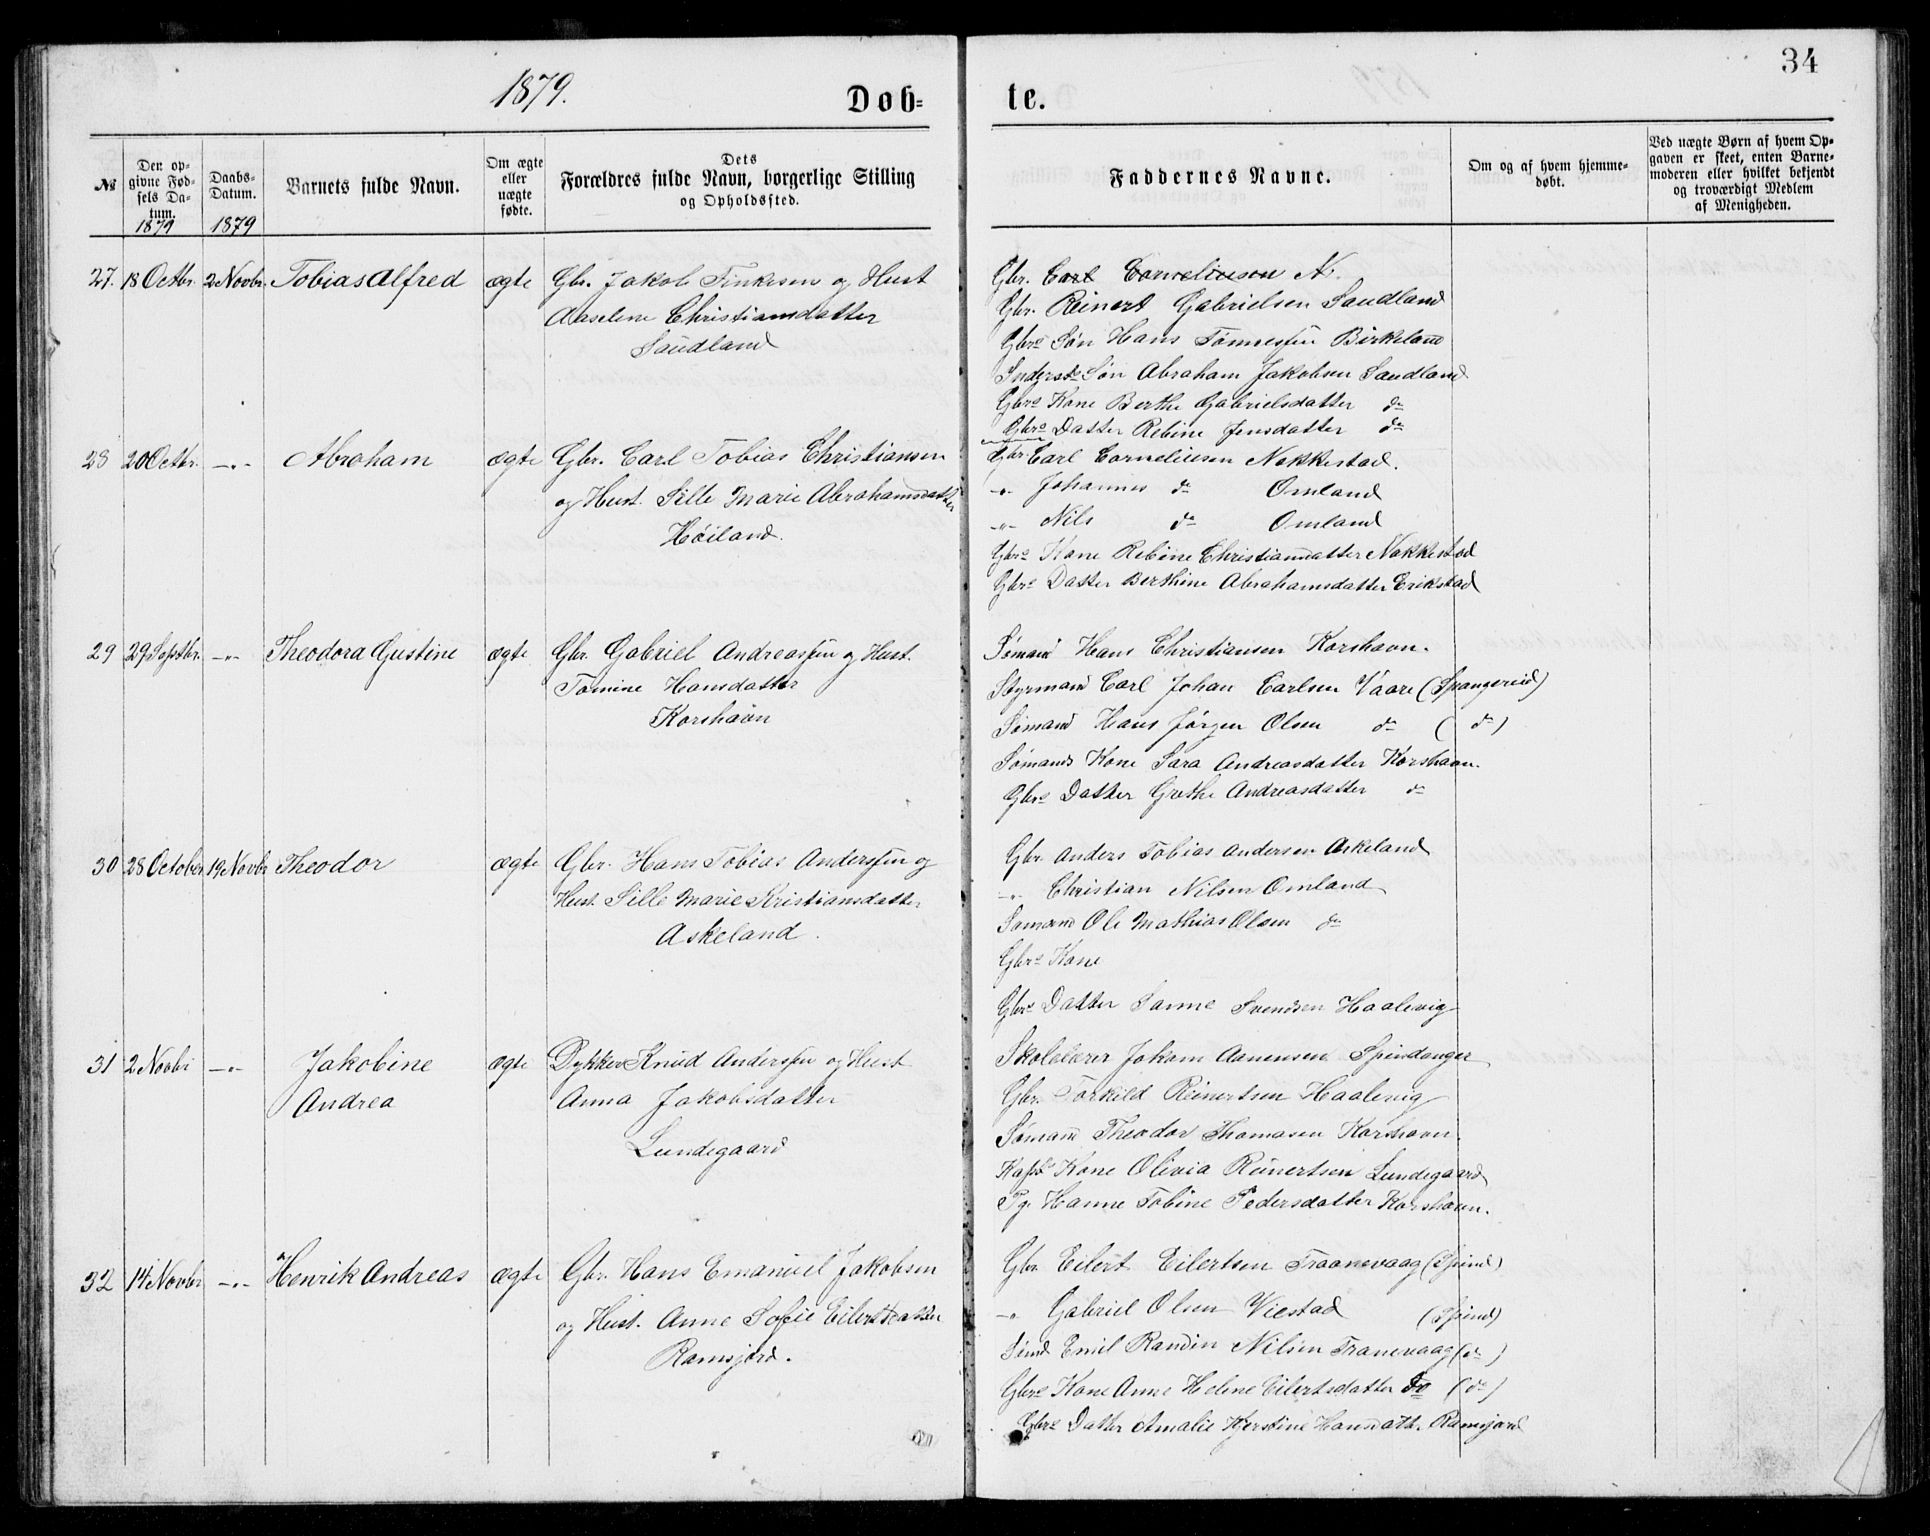 34
1879.
Dob=
te.
№
Den op-
givne Fød-
sels Da-
tum.
1879
Daabs-
Datum.
1879
Barnets fulde Navn.
Om ægte
eller
uægte
fødte.
Dets
Forældres fulde Navn, borgerlige Stilling
og Opholdssted.
Faddernes Navne.
Om og af hvem hjemme-
døbt.
Ved uægte Børn af hvem Op-
gaven er skeet, enten Barne-
moderen eller hvilket bekjendt
og troværdigt Medlem
af Menigheden.
27. 18 Octbr. 2 Novbr. Tobias Alfred ægte Gbr. Jakob Finksen og Hust
Aaselene Christiansdatter
Saudland
Gbr. Carl Corneliusen N.
Gbr. Reinert Gabrielsen Saudland
Gbrs Søn Hans Tønnessen Birkeland
Inderst. Søn Abraham Jakobsen Saudland
Gbrs Kone Berthe Gabrielsdatter do
Gbrs Datter Rebine Jensdatter do
28 20 Octbr. -"- Abraham ægte Gbr. Carl Tobias Christiansen
og Hust. Sille Marie Abrahamsdatter
Høiland.
Gbr. Carl Corneliusen Nakkestad.
-"- Johannes do Omland
-"- Nils do Omland
Gbrs Kone Rebine Christiansdatter Nakkestad
Gbrs Datter Berthine Abrahamsdatter Erikstad
29 29 Septbr. -"- Theodora Gustine ægte Gbr. Gabriel Andreassen og Hust.
Tomine Hansdatter
Korshavn
Sømand Hans Christiansen Korshavn.
Styrmand Carl Johan Carlsen Vaare (Spangereid)
Sømand Hans Jørgen Olsen do (do)
Sømands Kone Sara Andreasdatter Korshavn.
Gbrs Datter Grethe Andreasdatter do
30 28 October 19 Novbr Theodor ægte Gbr. Hans Tobias Anderssen og
Hust. Sille Marie Kristiansdatter
Askeland.
Gbr. Anders Tobias Andersen Askeland
-"- Christian Nilsen Omland
Sømand Ole Mathias Olsen do
Gbrs Kone
Gbrs Datter Sanne Svendsen Haalevig
31 2 Novbr -"- Jakobine
Andrea
ægte Dykker Knud Anderssen og Hust
Anna Jakobsdatter
Lundegaard
Skolelærer Jokom Aanensen Spindanger
Gbr. Torkild Reinertsen Haalevig
Sømand Theodor Thomasen Korshavn.
Kapt. Kone Olivia Reinertsen Lundegaard
Pg. Hanne Tobine Pedersdatter Korshavn.
32 14 Novbr -"- Henrik Andreas ægte Gbr. Hans Emanuel Jakobsen
og Hust. Anne Sofie Eilertsdatter
Ramsjord.
Gbr. Eilert Eilertsen Traanevaag (Spind)
-"- Gabriel Olsen Viestad (Spind)
Sømd Emil Randin Nilsen Tranevaag (do)
Gbrs Kone Anne Helene Eilertsdatter do (do)
Gbrs Datter Amalie Kjerstine Hansdatt. Ramsjord